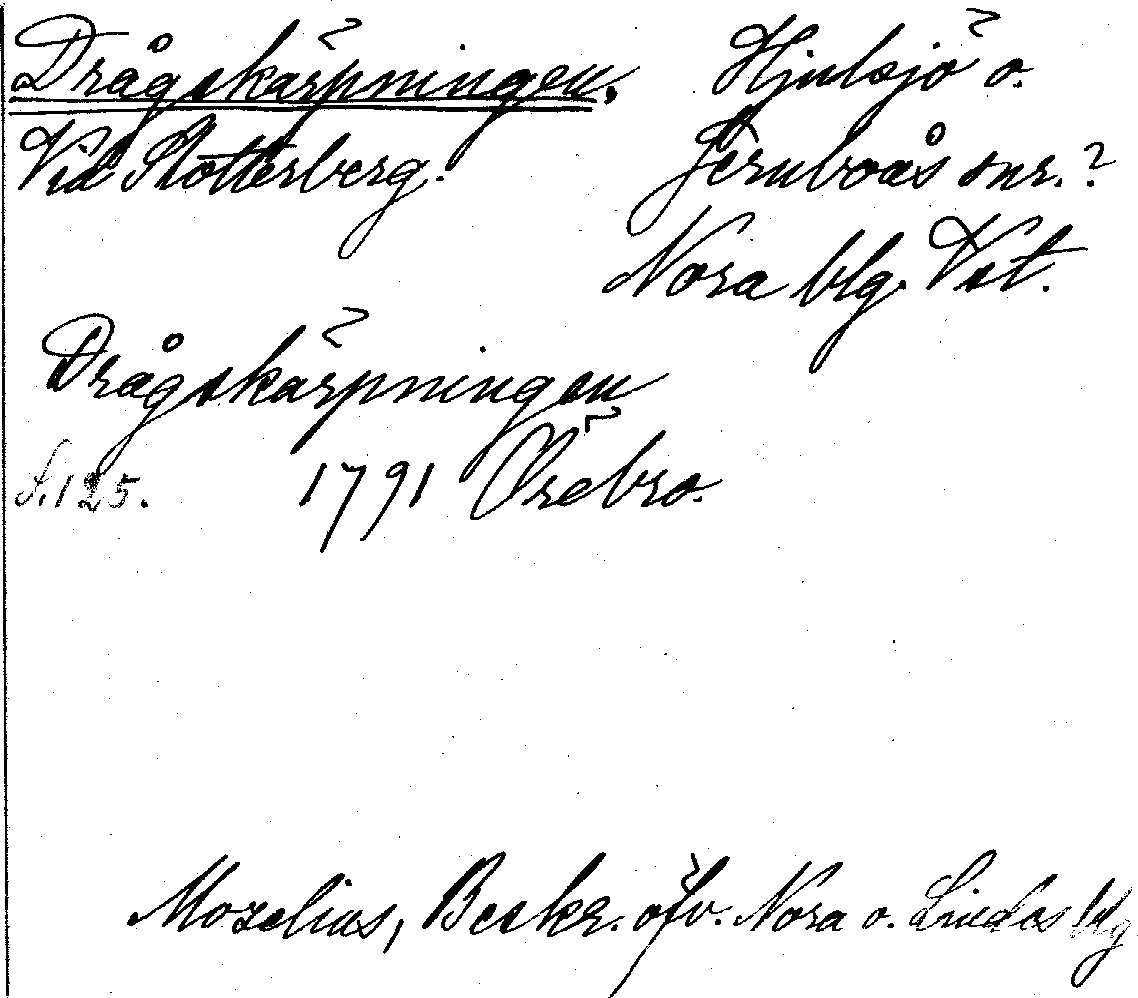 Drågskärpningen, Hjulsjö o.
Vid Slotterberg. Jernboås snr.?
Nora blg. Vst.
Drågskärpningen
S. 125. 1791 Örebro.
Mozelius, Beskr. öfv. Nora o. Lindes blg